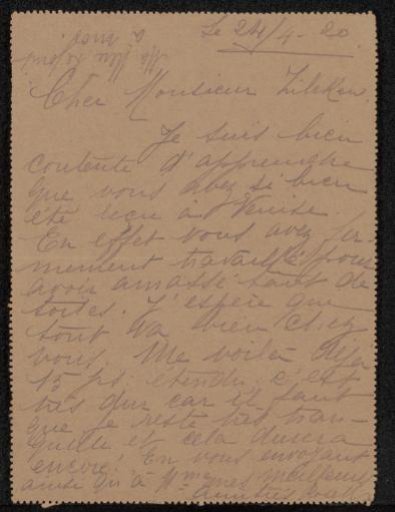 Le 24/4-20
Cher Monsieur Zilcken,
Je suis bien
contente d'apprendre
que vous avez si bien
été reçu à Venise.
En effet vous avez
travaillé pour
avoir amassé tant de
sortes. J'espère que
tout va bien chez
vous. Me voilà déjà
15 jrs. étendu, c'est
très dur car il faut
que je reste très tran-
quille et cela durera
encore! En vous envoyant
ainsi qu'à Mme mes meilleurs
amitiés